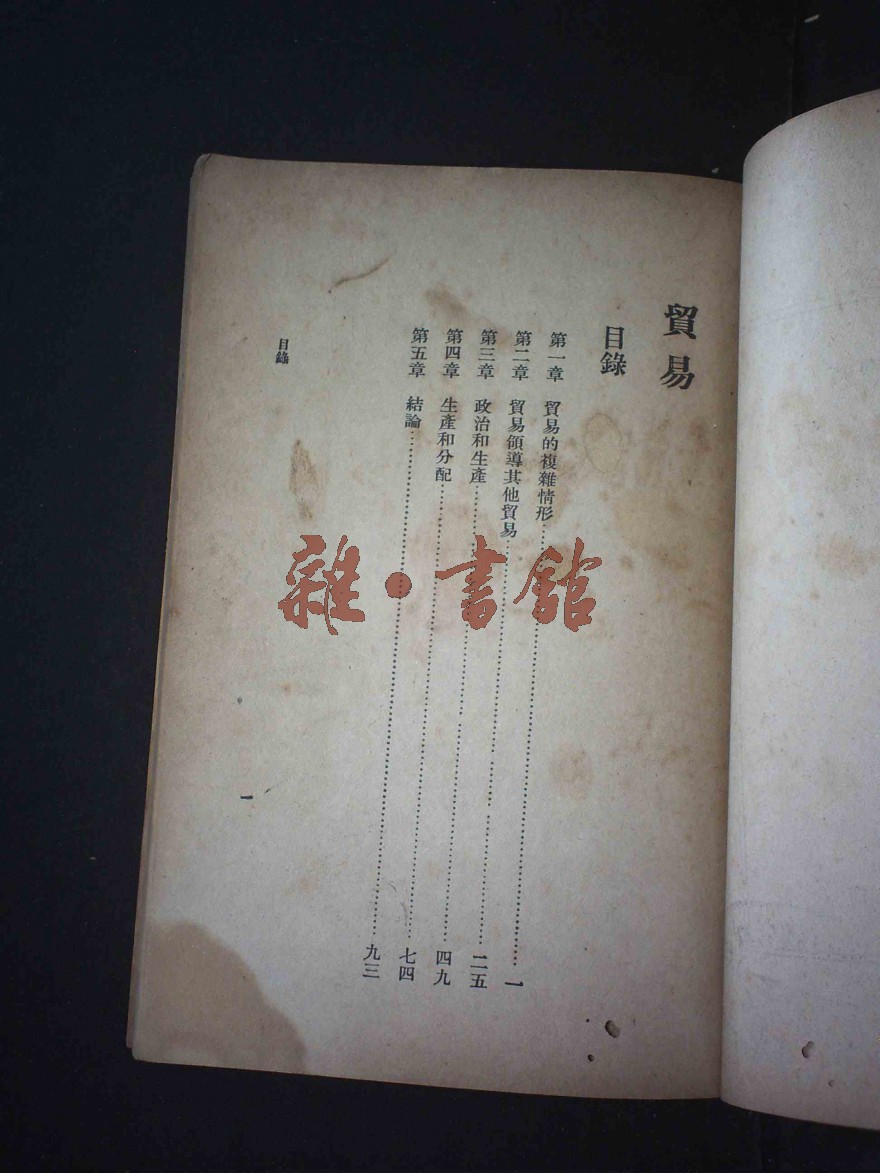 貿易
目錄
第一章　貿易的複雜情形……一
第二章　貿易領導其他貿易……二五
第三章　政治和生產……四九
第四章　生產和分配……七四
第五章　結論……九三
目錄
一
雜·書館